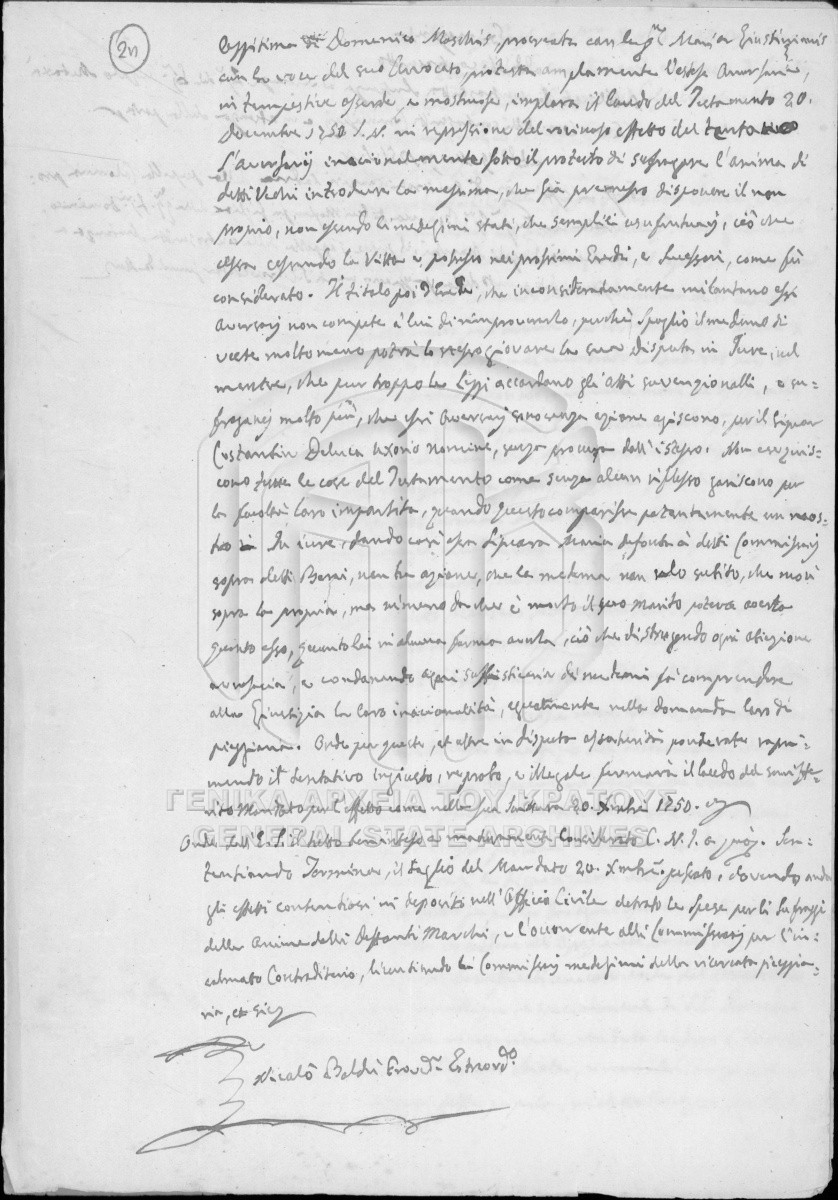 2n
Legitima di Domenico Maschis, procreata con la qm Maria Giustiniani
con la voce del suo Avvocato, protesta amplamente l'estesa Aversaria,
in tempestive essere, e mostruose, implora il laudo del Testamento 20.
Decembre 1750 S.N. in repressione del effetto del tentato
l'Aversarij irracionalmente sotto il protesto di suffragare l'anima di
detti introdur la massima, che sia permesso disponere il non
proprio, non essendo li medesimi stati, che semplici usufrutuarij, ciò che
cessa cessando la vitta e passato nei prossimi Eredi, e Sucessori, come fù
considerato. Il titolo poi d'Erede, che inconsideratamente milantano essi
Aversarij non compete à lui di rimproverarlo, perchè spoglio il medemo di
veste molto meno potrà lo stesso giovare la sua disputa in Jure,
mentre, che pur troppo le Leggi accordano gli atti e su-
fraganej molto più, che essi Aversarij senza azione agiscono, per il Signor
Costantin Deluca uxorio nomine, senza procura dall'istesso. Non
come tutte le cose del Testamento come senza alcun riflesso per
la facoltà loro impartita, quando questo comparisse patentemente un mos-
tro in Jure, dando così essa Signora Maria defonta à detti Commissarij
sopra detti Beni, non tra azione, che la medema non solo subito, che morì
sopra la propria, ma nimeno da che è morto il suo Marito poteva averla
quanto esso, quanto lei in alcuna forma avuta, ciò che distrugendo ogni obiezione
aversaria, e condanando ogni suffisticaria dei medemi fà comprendere
alla Giustizia la loro irracionalità, equalmente nella domanda loro di
pieggiaria. Onde per queste, et altre in disputa ponderate repri-
mendo il tentativo ingiusto, reprobo, e illegale formarà il laudo del
Mandato per l'effetto come nella sua scrittura 20. Xmbre 1750.
ΓΕΝΙΚΑ ΑΡΧΕΙΑ ΤΟΥ ΚΡΑΤΟΥΣ
GENERAL STATE ARCHIVES
Onde dall'E.S. il tutto ben inteso e maturamente Considerato C. N. I. Sen-
tentiando Termina, il taglio del Mandato 20. Xmbre passato, dovendo
gli effetti contentiosi in depositi nell'Officio Civile detrato le spese per li Suffraggi
delle Anime delli Defonti Marchi, e l'occorrente alli Commissarij per l'in-
calmato Contraditorio, licentiando li Commissarij medesimi della ricercata pieggia-
ria, et sic
Nicolò Baldi Provdr Estraordo